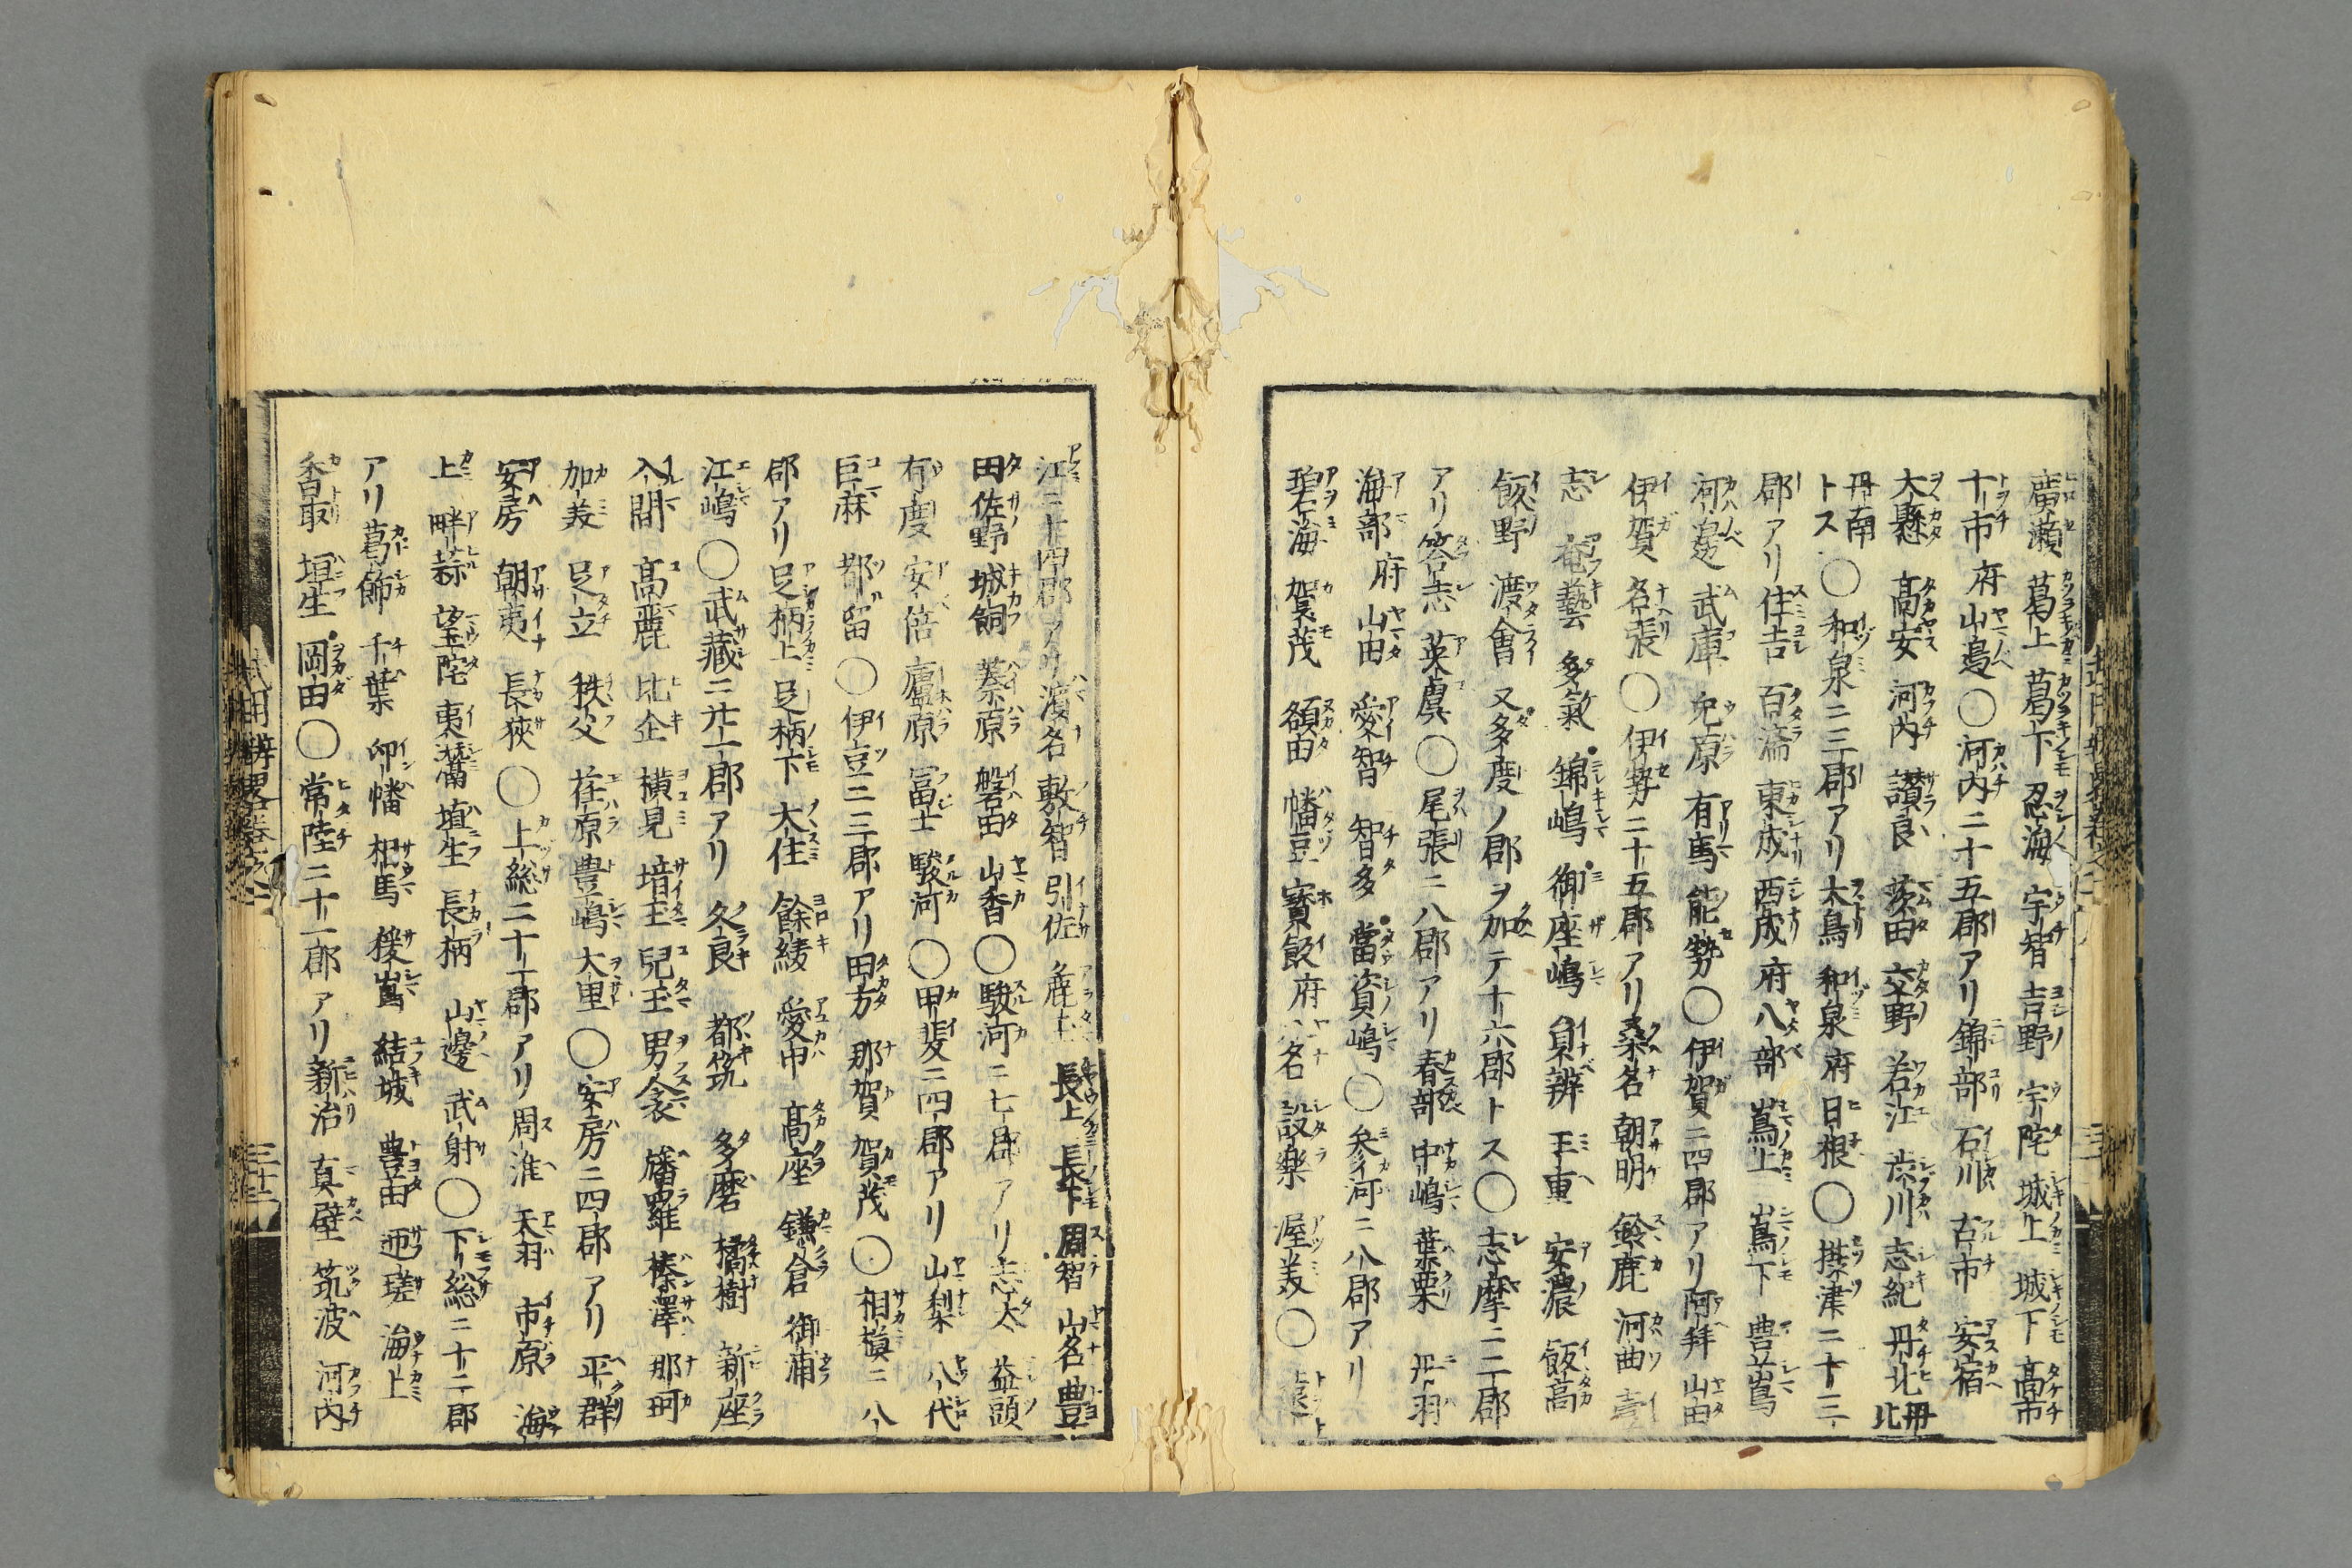 廣瀬 葛上 葛下 忍海 宇智 吉野 宇陀 城上 城下 高市
十市 府 山邉 〇河内ニ十五郡アリ 錦部 石川 古市 安宿
大縣 高安 河内 讃良 茨田 交野 若江 渋川 志紀 丹北 丹北
丹南トス 〇和泉ニ三郡アリ 大鳥 和泉 府 日根 〇摂津ニ十三
郡アリ 住吉 百済 東成 西成 府 八部 嶌上 嶌下 豊嶌
河邉 武庫 兎原 有馬 能勢 〇伊賀ニ四郡アリ 阿拜 山田
伊賀 名張 〇伊勢ニ十五郡アリ 桑名 朝明 鈴鹿 河曲 壹
志 奄藝 多氣 錦嶋 御座嶋 員辨 三重 安濃 飯高
飯野 渡會 又多度ノ郡ヲ加テ十六郡トス 〇志摩ニ二郡
アリ 答志 英虞 〇尾張ニ八郡アリ 春部 中嶋 葉栗 丹羽
海部 府 山田 愛智 智多 當資嶋 〇参河ニ八郡アリ
碧海 賀茂 額田 幡豆 寳飯 府 八名 設樂 渥美 〇遠
江ニ十四郡アリ 濱名 敷智 引佐 麁玉 長上 長下 周智 山名 豊
田 佐野 城飼 蓁原 磐田 山香 〇駿河ニ七郡アリ 志太 益頭
有度 安倍 廬原 冨士 駿河 〇甲斐ニ四郡アリ 山梨 八代
巨麻 都留 〇伊豆ニ三郡アリ 田方 那賀 賀茂 〇相模ニ八
郡アリ 足柄上 足柄下 大住 餘綾 愛甲 高座 鎌倉 御浦
江嶋 〇武藏ニ廿一郡アリ 久良 都筑 多磨 橘樹 新座
入間 高麗 比企 横見 埼玉 兒玉 男衾 幡羅 榛澤 那珂
加美 足立 秩父 荏原 豊嶋 大里 〇安房ニ四郡アリ 平群
安房 朝夷 長狹 〇上総ニ十一郡アリ 周淮 天羽 市原 海
上 畔蒜 望陀 夷灊 埴生 長柄 山邊 武射 〇下総ニ十二郡
アリ 葛飾 千葉 印幡 相馬 猨嶌 結城 豊田 迊瑳 海上
香取 埴生 岡田 〇常陸ニ十一郡アリ 新治 真壁 筑波 河内
三十二